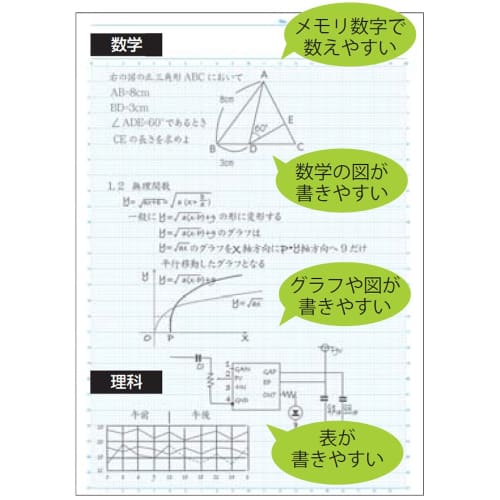 メモリ数字で
数えやすい
数学
右の図の正三角形ABCにおいて
AB=8cm
BD=3cm
∠ADE=60°であるとき
CEの長さを求めよ
A
8cm
E
60°
B
D
C
3cm
数学の図が
書きやすい
1.2 無理関数
y=√ax+b=√a(x+b/a)
一般に y=√a(x-p)+q の形に変形する
y=√a(x-p)+q のグラフは
y=√ax のグラフをX軸方向にP・y軸方向へ9だけ
平行移動したグラフとなる
y=√a(x-p)+q
y
y=√ax
O
P
X
グラフや図が
書きやすい
理科
1
2
3
4
GAIN
+IN
GND
GAP
OUT
午前
午後
表が
書きやすい